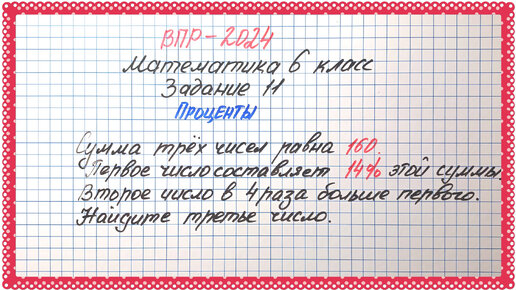 ВПР-2024
Математика 6 класс
Задание 11
Проценты
Сумма трёх чисел равна 160.
Первое число составляет 14% этой суммы.
Второе число в 4 раза больше первого.
Найдите третье число.